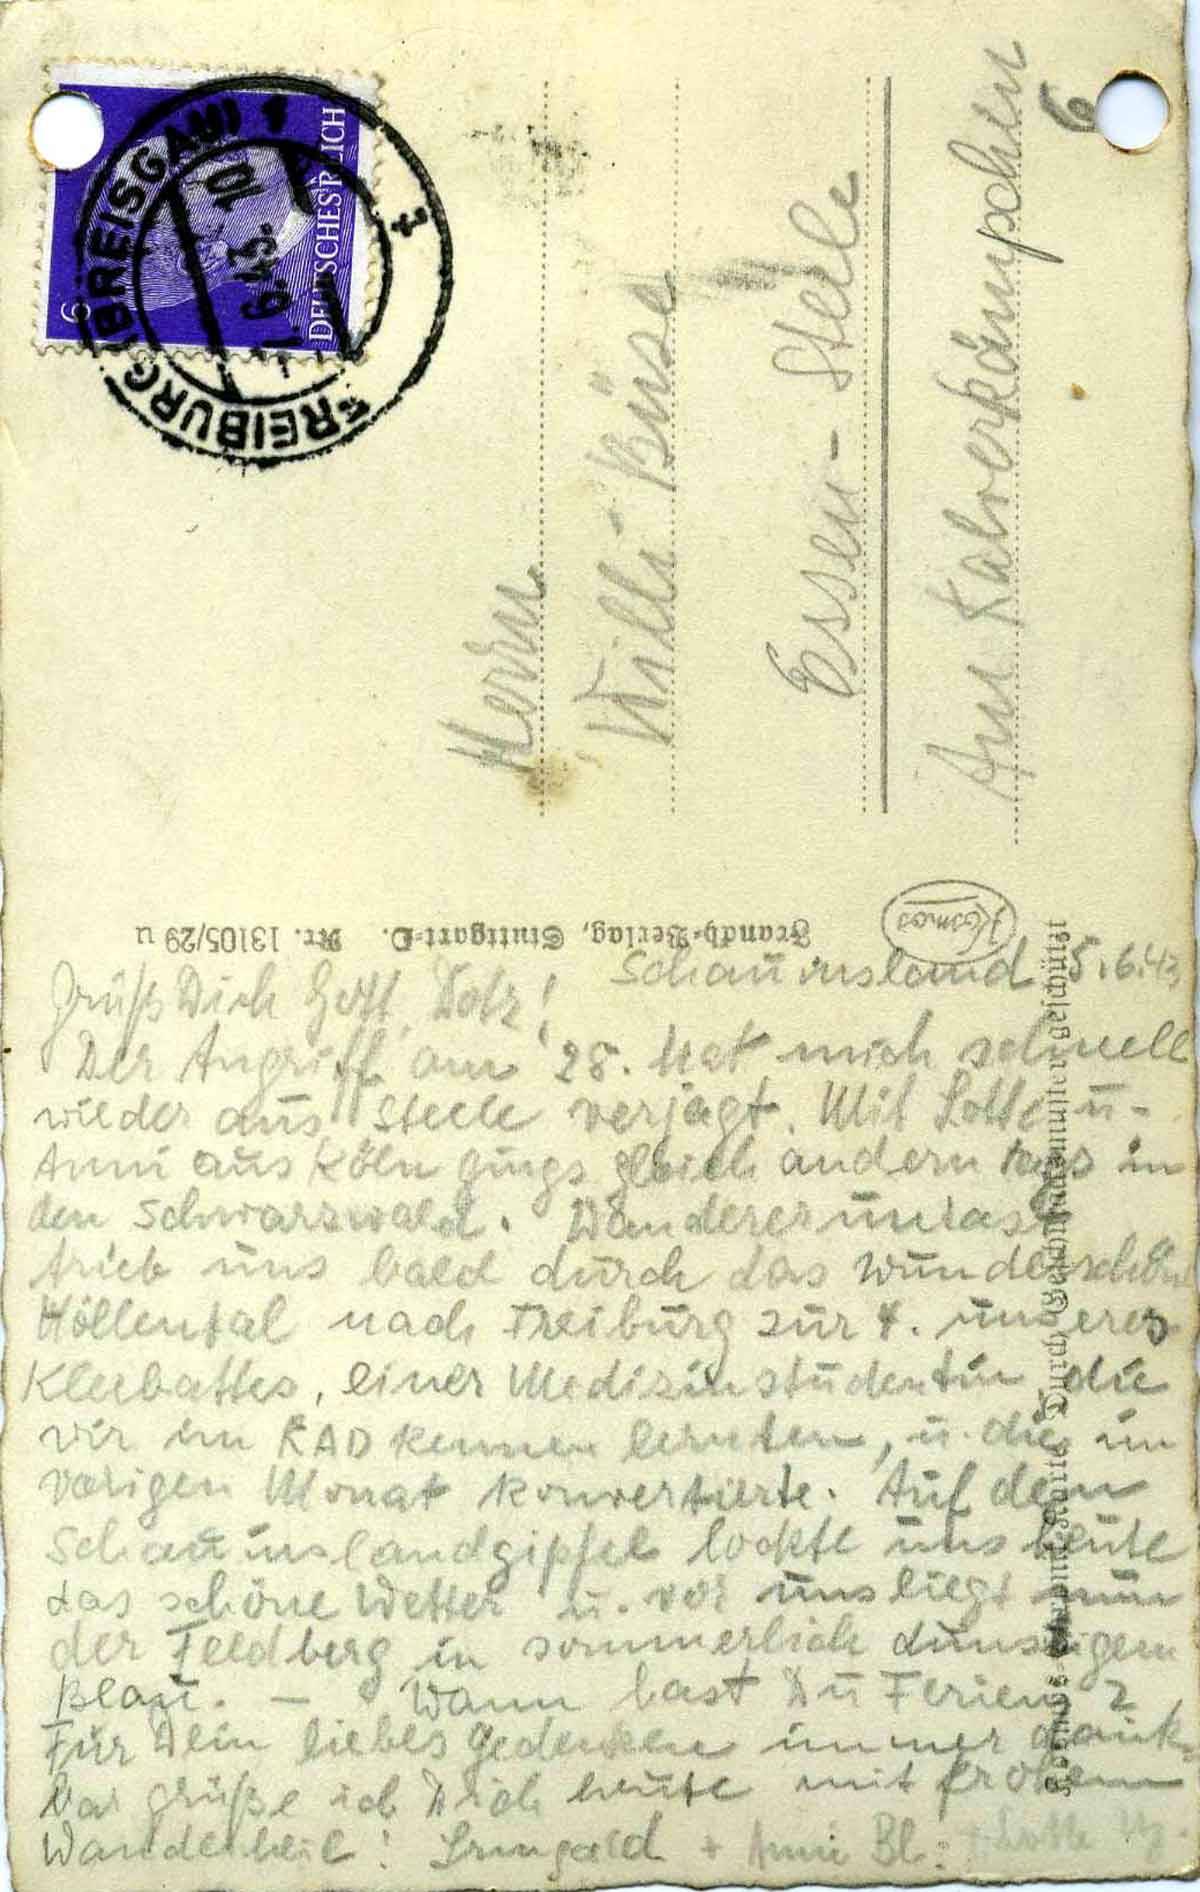 DEUTSCHES REICH
6
FREIBURG (BREISGAU) 1
6.43. 10
Herrn
Willi Büse
Essen-Steele
Am Kalverkämpchen
6
Franckh-Verlag, Stuttgart-O. Nr. 13105/29 u
Kosmos
Schauinsland 5.6.43
Grüß Dich Gott,
Der Angriff am 28. hat mich schnell
wieder aus Steele verjagt. Mit Lotte u.
Anni aus Köln gings gleich andern tags in
den Schwarzwald. Wandererunrast
trieb uns bald durch das wunderschöne
Höllental nach Freiburg zur 4. unseres
Kleebattes, einer Medizinstudentin die
wir im RAD kennen lernten, u. die im
vorigen Monat konvertierte. Auf dem
Schauinslandgipfel lockte uns heute
das schöne Wetter u. vor uns liegt nun
der Feldberg in sommerlich dunstigem
Blau. – Wann hast Du Ferien?
Für Dein liebes Gedenken immer dank-
bar grüße ich Dich heute mit frohem
Wanderheil! Irmgard + Anni Bl. + Lotte